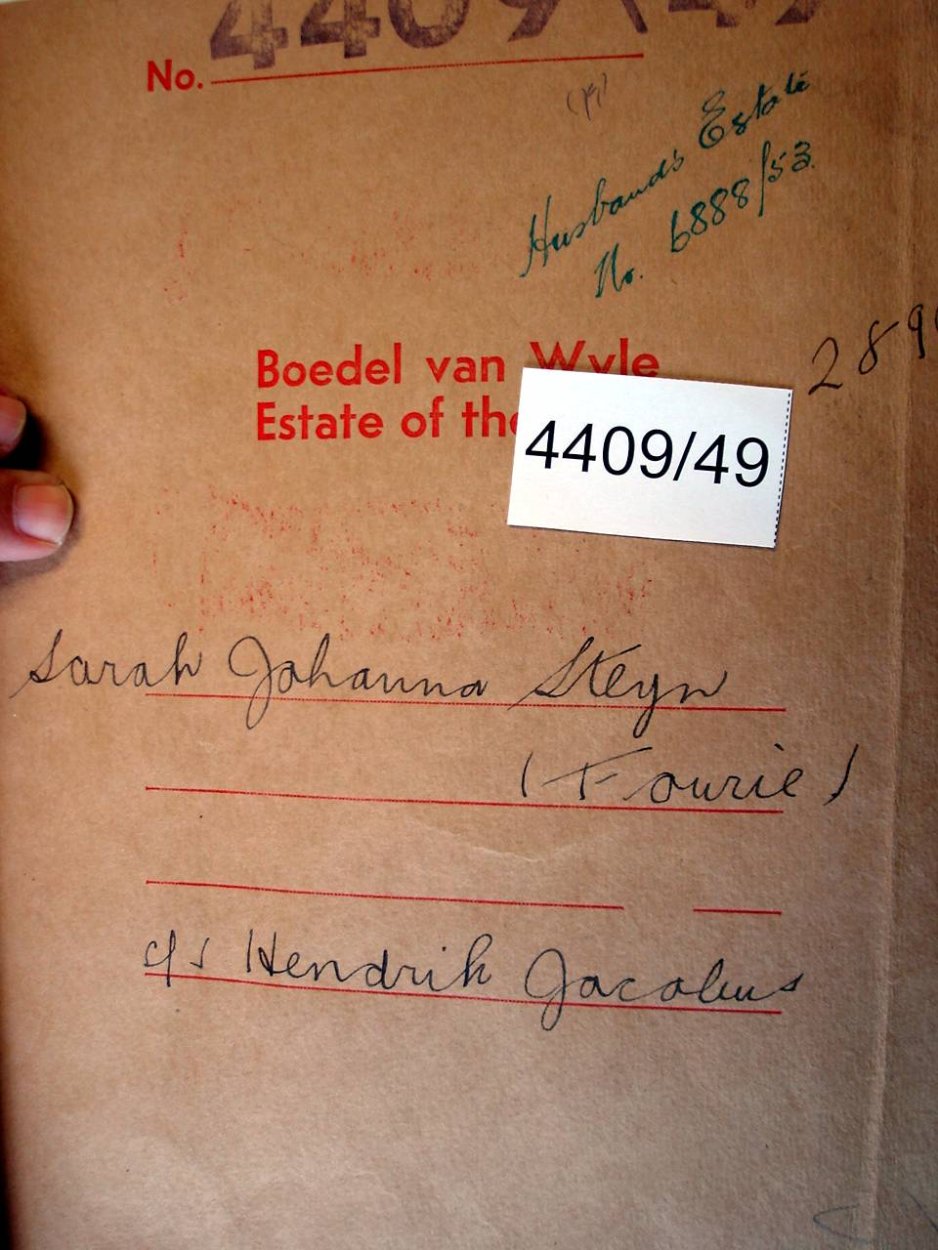 No. 4409/49
(19)
Husband's Estate
No. 6888/53
Boedel van Wyle
Estate of the
4409/49
289
Sarah Johanna Steyn
(Fourie)
c/s Hendrik Jacobus